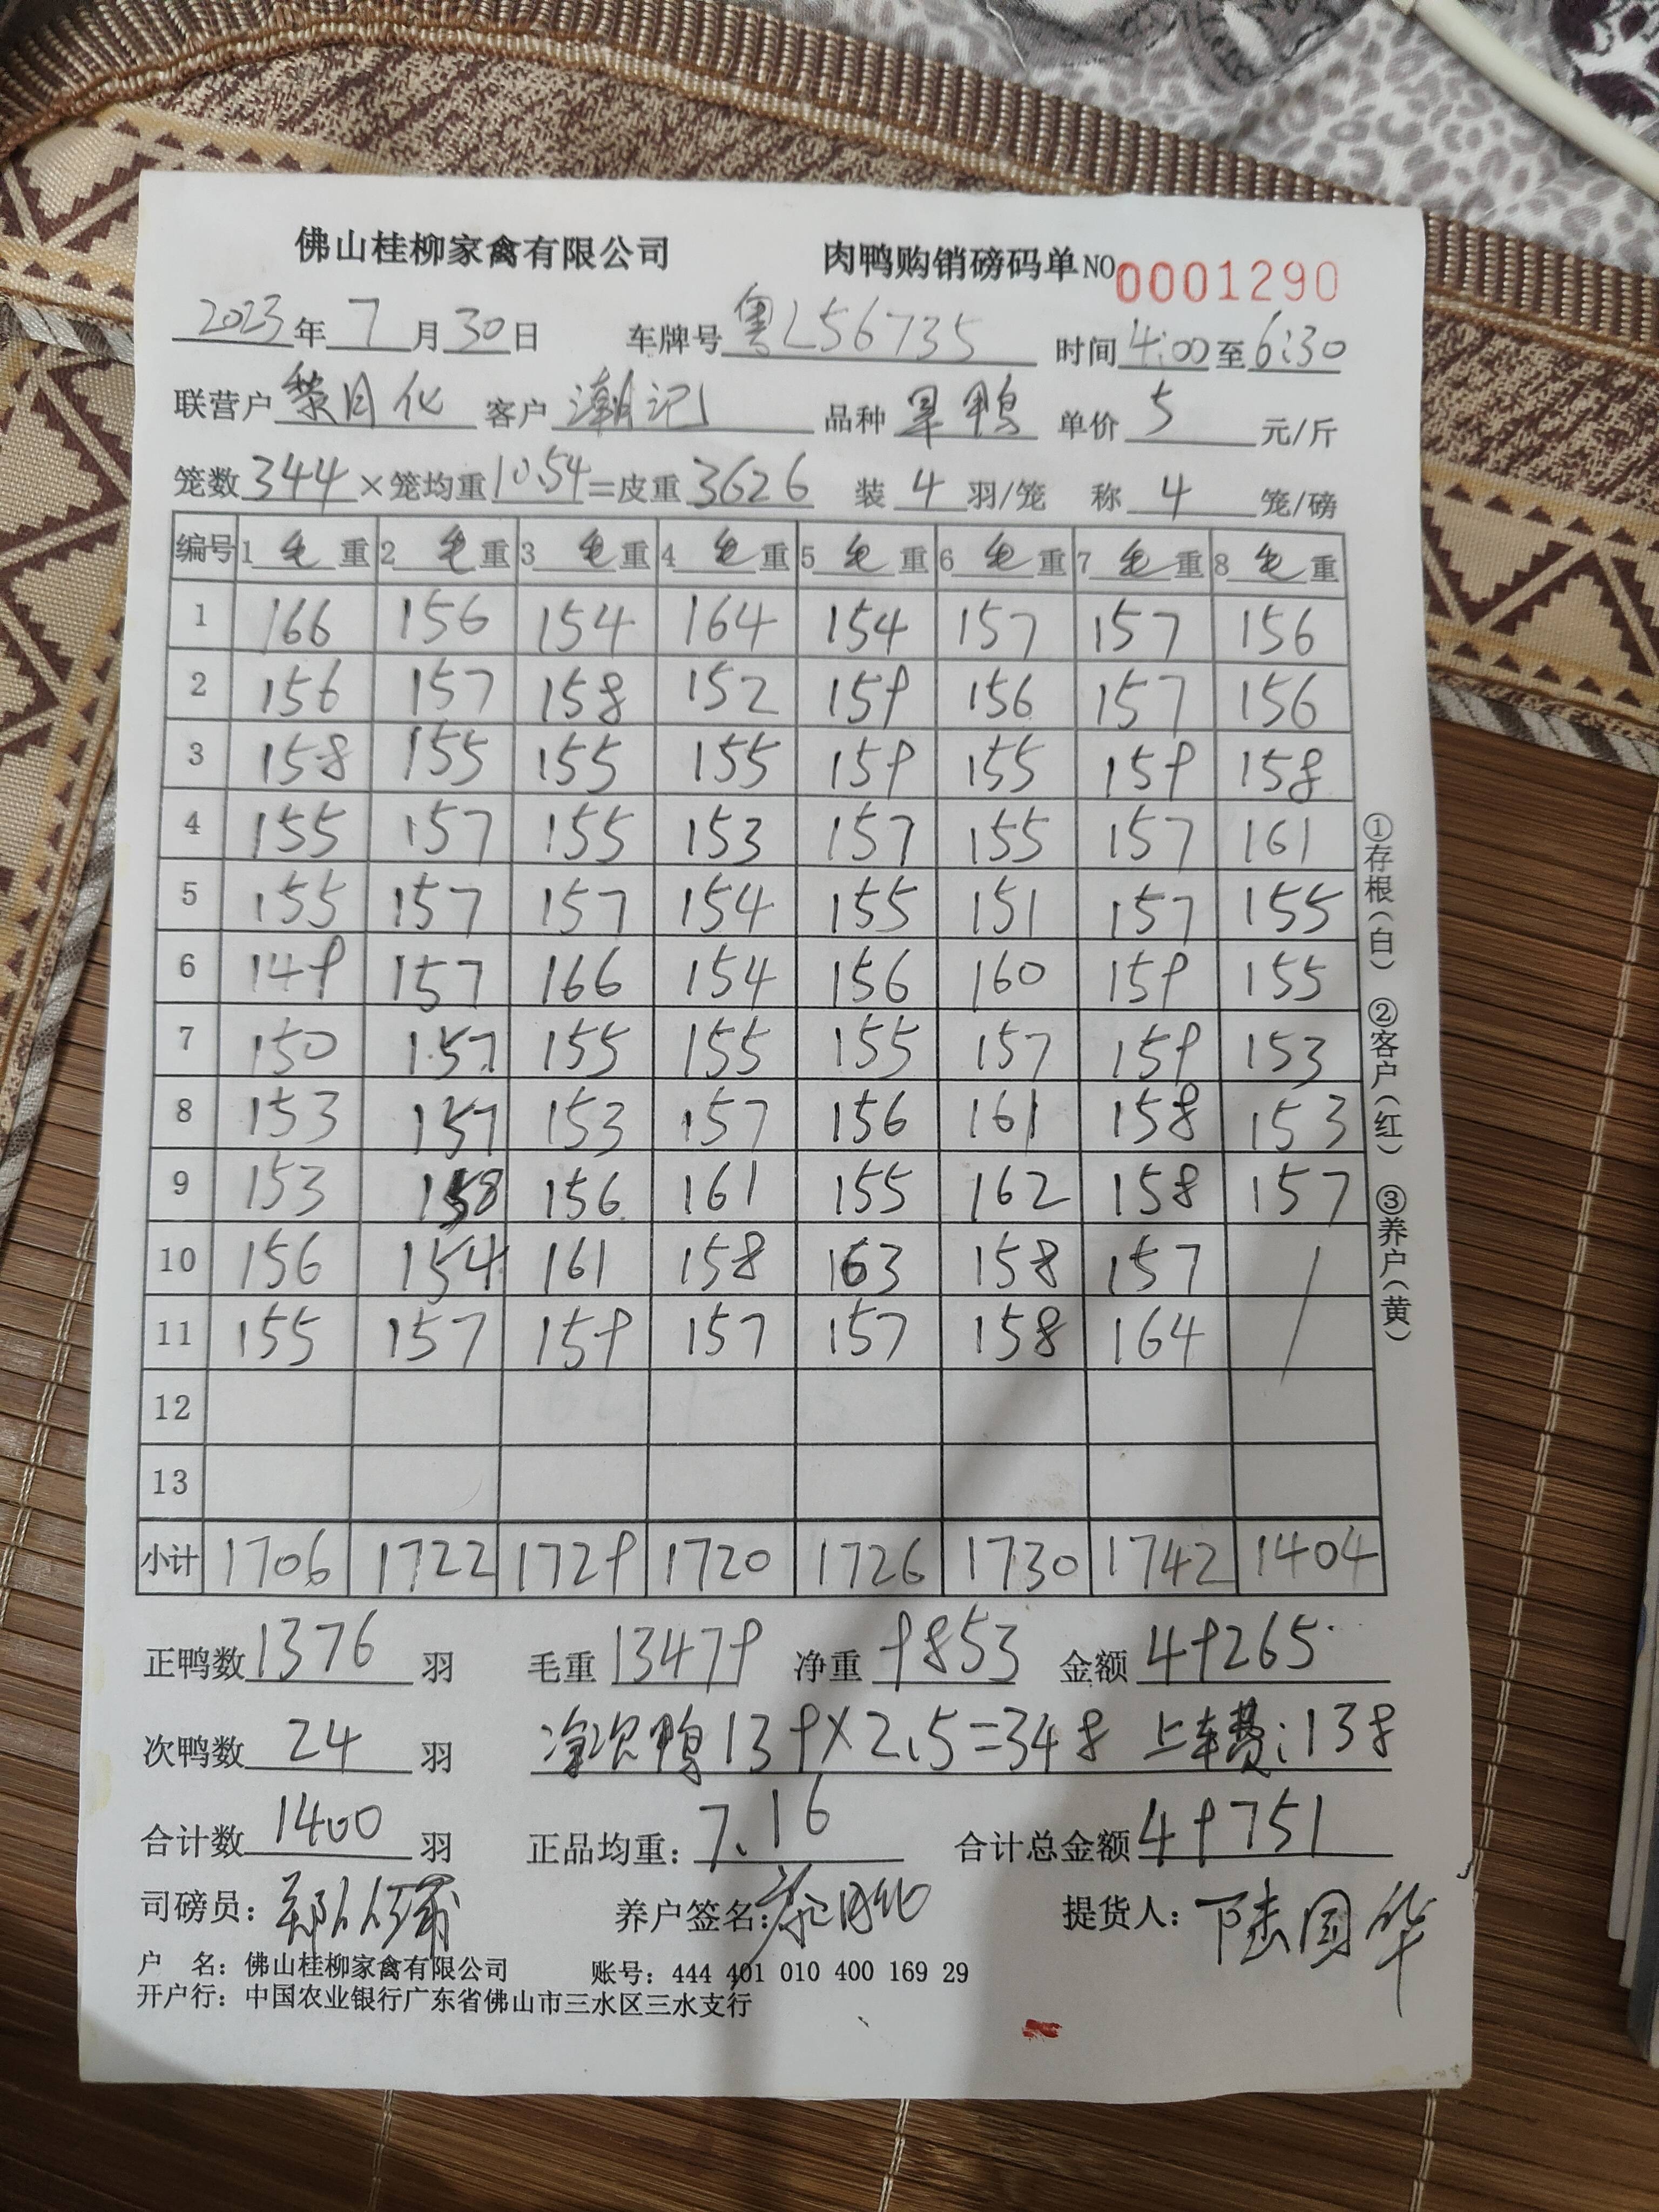 佛山桂柳家禽有限公司 肉鸭购销磅码单 NO 0001290
2023年 7 月 30 日 车牌号 粤L56735 时间 4:00 至 6:30
联营户 黎月化 客户 潮记 品种 旱鸭 单价 5 元/斤
笼数 344 ×笼均重 10.54 =皮重 3626 装 4 羽/笼 称 4 笼/磅
编号 1 毛 重 2 毛 重 3 毛 重 4 毛 重 5 毛 重 6 毛 重 7 毛 重 8 毛 重
1 166 156 154 164 154 157 157 156
2 156 157 158 152 159 156 157 156
3 158 155 155 155 159 155 159 158
4 155 157 155 153 157 155 157 161
5 155 157 157 154 155 151 157 155
6 149 157 166 154 156 160 159 155
7 150 157 155 155 155 157 159 153
8 153 157 153 157 156 161 158 153
9 153 158 156 161 155 162 158 157
10 156 154 161 158 163 158 157 /
11 155 157 159 157 157 158 164
12
13
小计 1706 1722 1729 1720 1726 1730 1742 1404
正鸭数 1376 羽 毛重 13479 净重 9853 金额 49265
次鸭数 24 羽 净次鸭 139×2.5=348 上车费:138
合计数 1400 羽 正品均重: 7.16 合计总金额 49751
司磅员: 养户签名: 黎月化 提货人: 陆国华
户 名: 佛山桂柳家禽有限公司 账号: 444 401 010 400 169 29
开户行: 中国农业银行广东省佛山市三水区三水支行
①存根(白) ②客户(红) ③养户(黄)